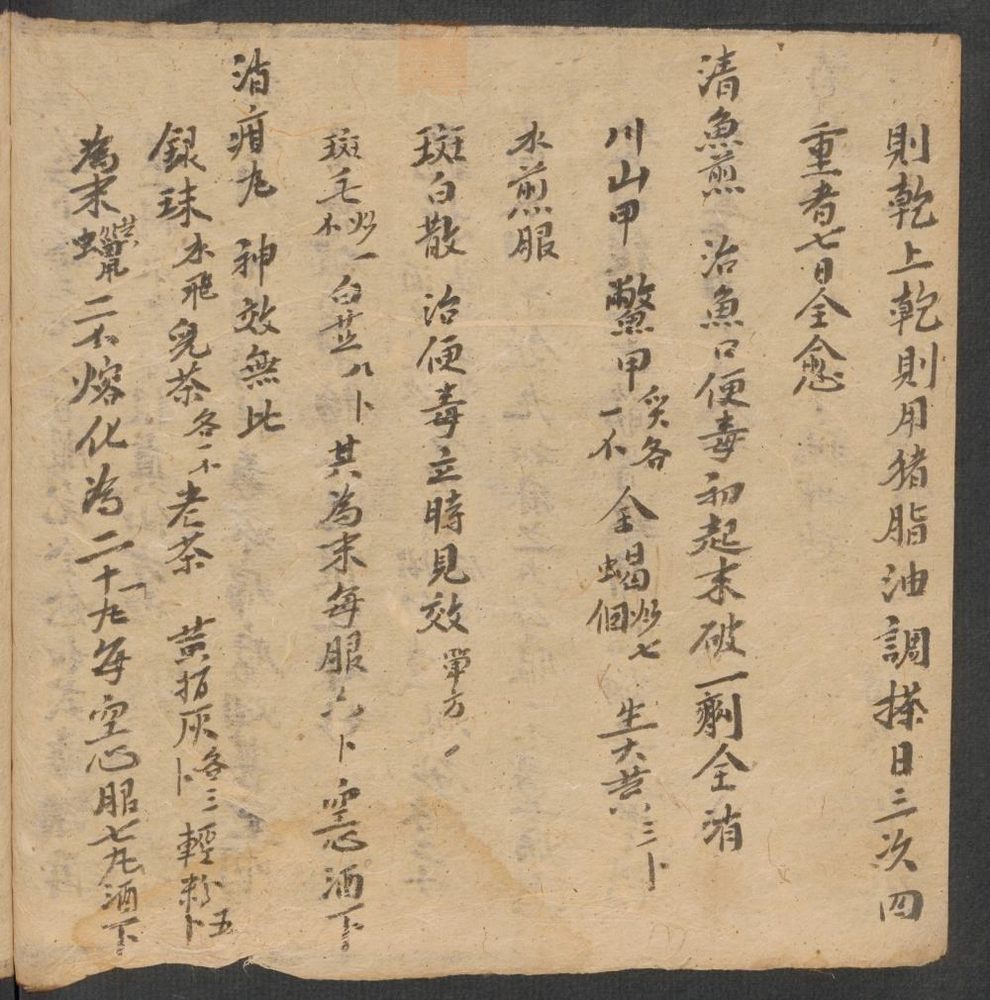 則乾上乾則用猪脂油調搽日三次四
重者七日全愈
清魚煎 治魚口便毒初起未破一劑全消
川山甲 鱉甲炙各一不 全蝎炒七個 生大黄三卜
水煎服
斑白散 治便毒立時見效 單方
斑毛炒不一白芷八卜其為末每服六卜空心酒下
消疳丸 神效無比
銀珠水飛兒茶各一不老茶 黄指灰各三卜輕粉五卜
為末黄蠟二不熔化為二十一丸每空心服七丸酒下